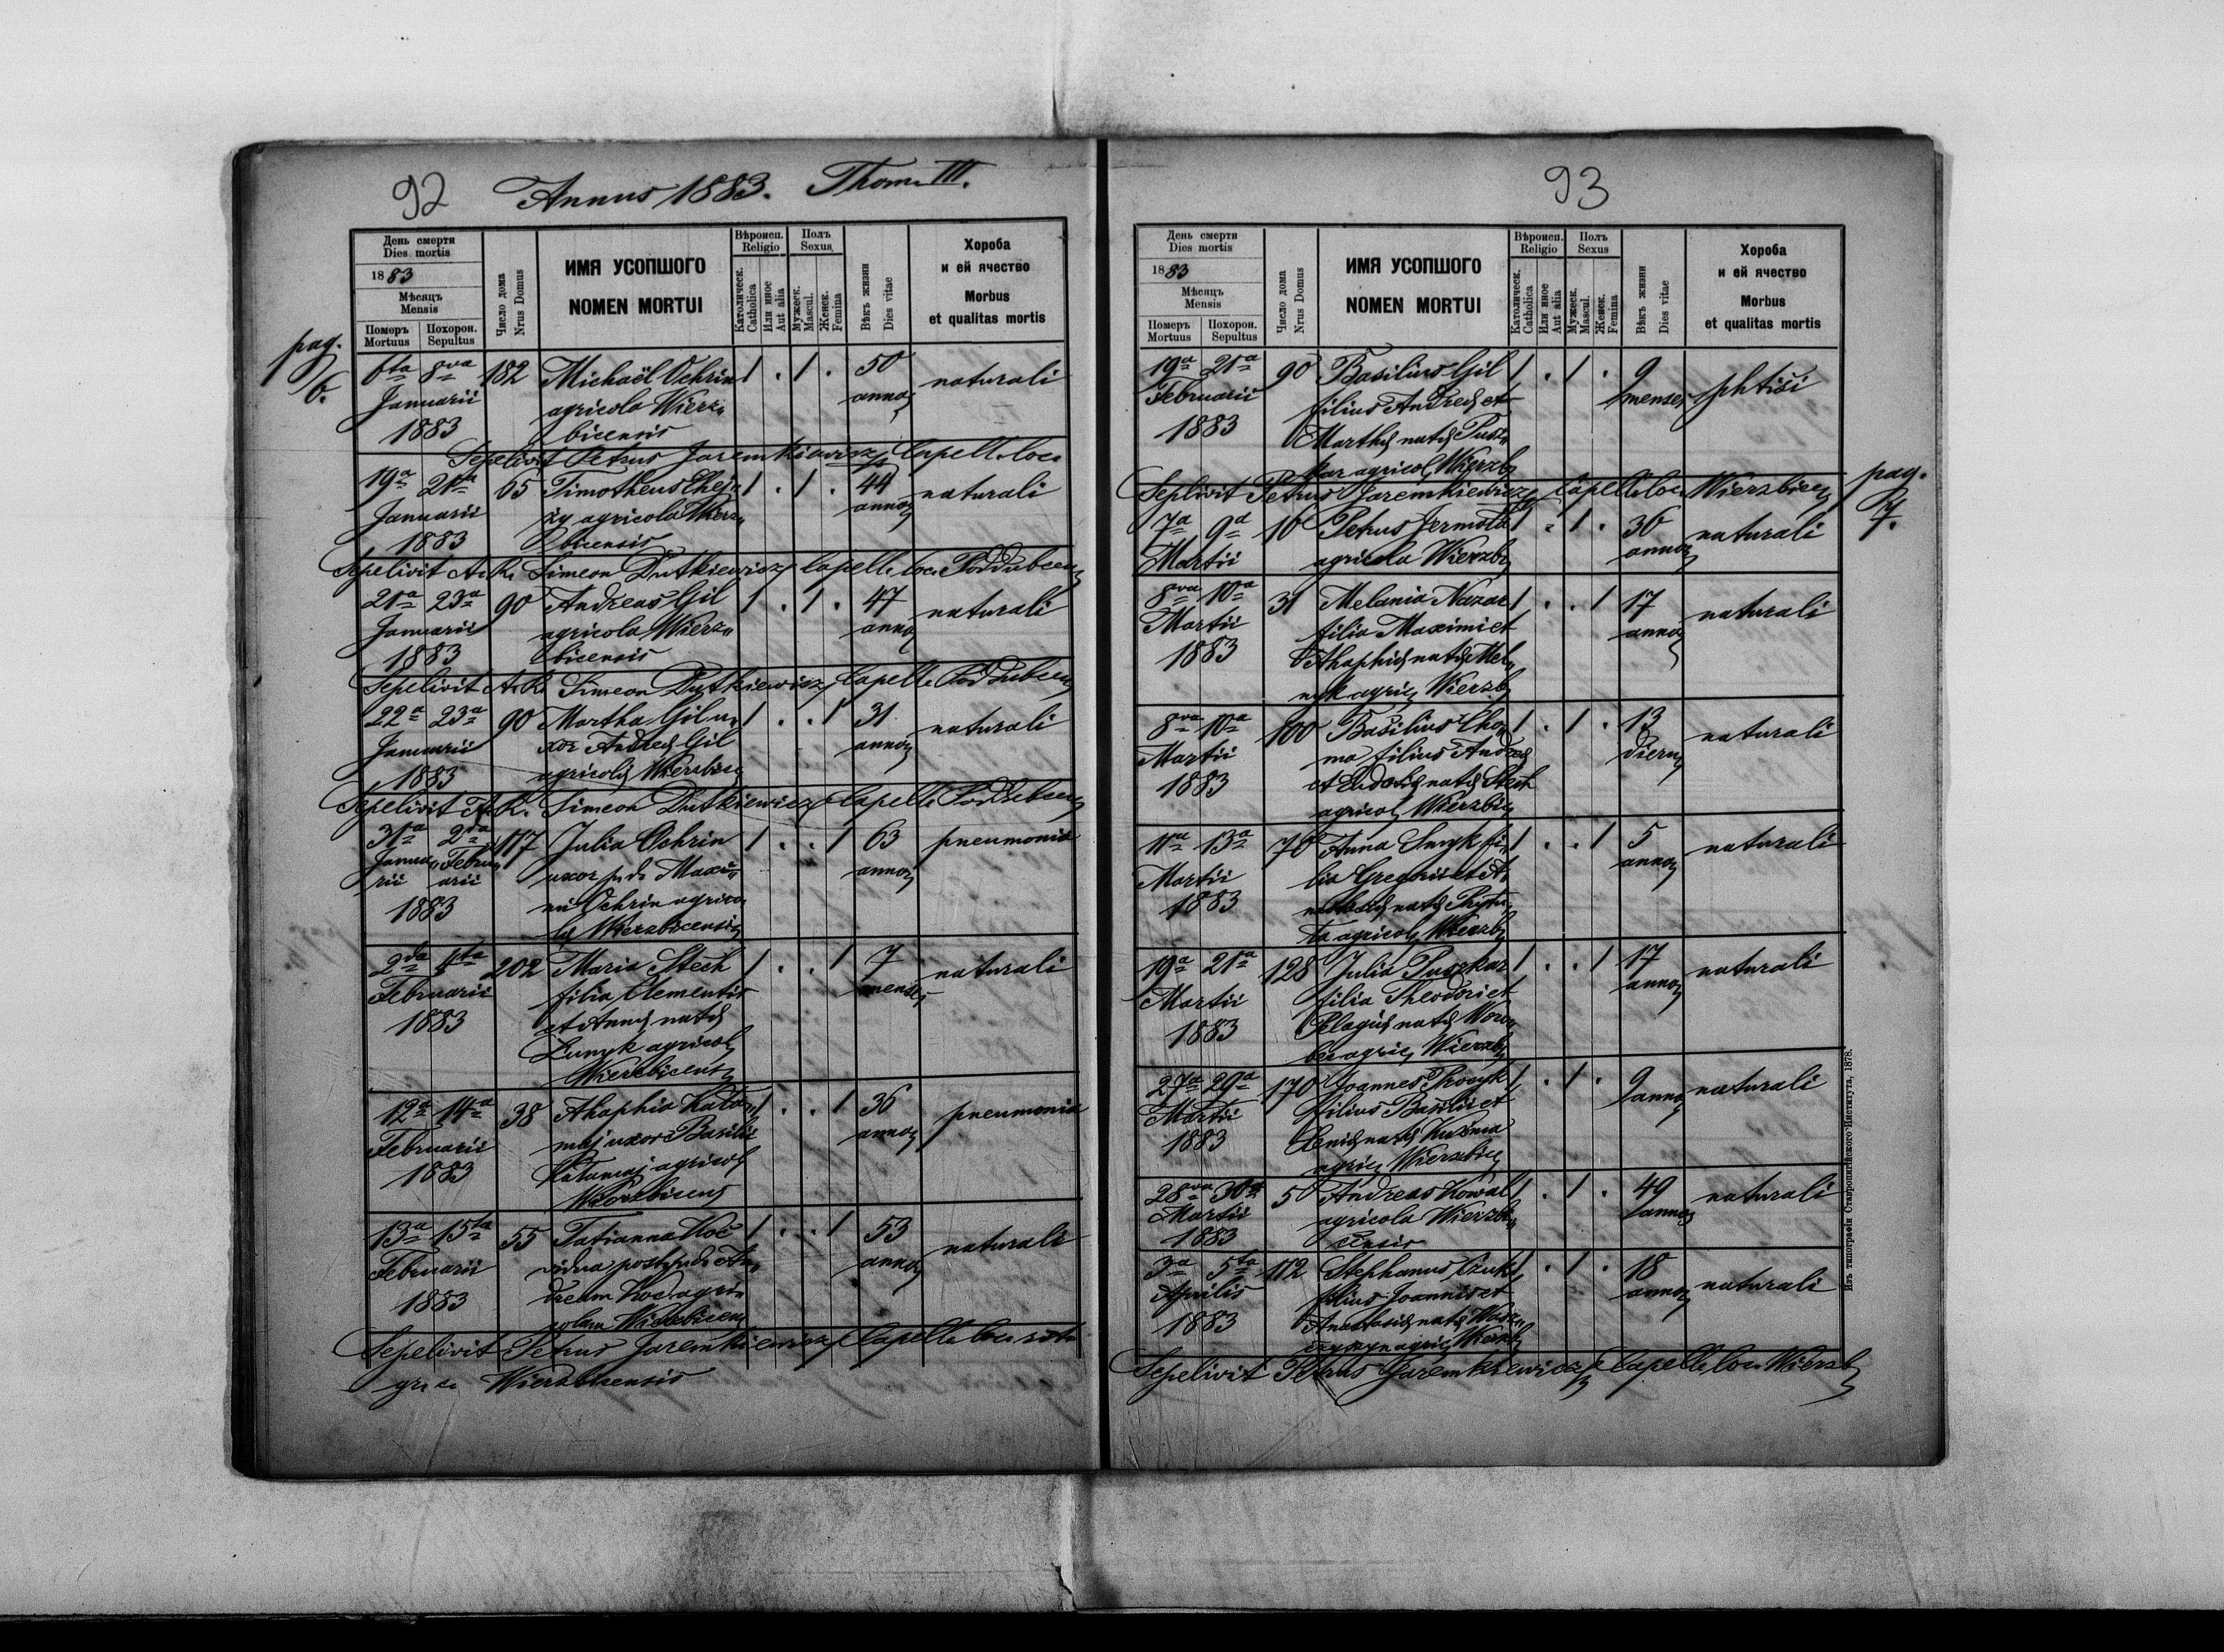 92 Annus 1883. Thom. III.
День смерти
Dies mortis
1883
Мѣсяць
Mensis
Померъ
Mortuus
Похорон.
Sepultus
Число дома
Nrus Domus
ИМЯ УСОПШОГО
NOMEN MORTUI
Вѣроисп.
Religio
Католическ.
Catholica
Или иное
Aut alia
Полъ
Sexus
Мужеск.
Mascul.
Женск.
Femina
Вѣкъ жизни
Dies vitae
Хороба
и ей ячество
Morbus
et qualitas mortis
pag.
6.
6ta 8va 182 Michaël Ochrin 1 . 1 . 50 naturali
Januarii agricola Wierz„ anno
1883 bicensis
Sepelivit Petrus Jaremkiewicz Capell. loc.
19a 21a 65 Timotheus Chej„ 1 . 1 . 44 naturali
Januarii agricola Wierz„ anno
1883 bicensis
Sepelivit A. R. Simeon Dutkiewicz Capell. loc. Poddubcen
21a 23a 90 Andreas Gil 1 . 1 . 47 naturali
Januarii agricola Wierz„ anno
1883 bicensis
Sepelivit A. R. Simeon Dutkiewicz Capell. Poddubcen
22a 23a 90 Martha Gil u„ 1 . . 1 31 naturali
Januarii xor Andreæ Gil anno
1883 agricolæ Wierzbic
Sepelivit A. R. Simeon Dutkiewicz Capell. Poddubcen
31a 2da 117 Julia Ochrin 1 . . 1 63 pneumonia
Janua„ Febru„ uxor p. d. Maxi„ anno
rii arii mi Ochrin agrico„
1883 læ Wierzbicensis
2da 4ta 202 Maria Stech 1 . . 1 7 naturali
Februarii filia Clementis menses
1883 et Annæ natæ
Lunyk agricol
Wierzbicens
12a 14a 38 Ahaphia Kata„ 1 . . 1 36 pneumonia
Februarii maj uxor Basilii anno
1883 Katamaj agricol
Wierzbicens
13a 15ta 55 Tatianna Koć 1 . . 1 53 naturali
Februarii vidua post p. d. An„ anno
1883 dream Koć agri„
colam Wierzbicen
Sepelivit Petrus Jaremkiewicz Capell. loc. rit.
gr. c. Wierzbicensis
93
День смерти
Dies mortis
1883
Мѣсяць
Mensis
Померъ
Mortuus
Похорон.
Sepultus
Число дома
Nrus Domus
ИМЯ УСОПШОГО
NOMEN MORTUI
Вѣроисп.
Religio
Католическ.
Catholica
Или иное
Aut alia
Полъ
Sexus
Мужеск.
Mascul.
Женск.
Femina
Вѣкъ жизни
Dies vitae
Хороба
и ей ячество
Morbus
et qualitas mortis
19a 21a 90 Basilius Gil 1 . 1 . 9 phtisi
Februarii filius Andreæ et menses
1883 Marthæ natæ Pusz„
kar agricol Wierzb
Seplivit Petrus Jaremkiewicz Capell. loc. Wierzbicen
pag.
7.
7a 9a 16 Petrus Jermola 1 . 1 . 36 naturali
Martii agricola Wierzb anno
8va 10a 31 Melania Nazar 1 . . 1 17 naturali
Martii filia Maximi et anno
1883 Ahaphiæ natæ Mel„
nyk agric Wierzb
8va 10a 100 Basilius Cho„ 1 . 1 . 13 naturali
Martii ma filius Andreæ dierum
1883 et natæ Stech
agricol Wierzbic
11a 13a 70 Anna Smyk fi„ 1 . . 1 5 naturali
Martii lia Gregorii et A„ anno
1883 natæ
agricol Wierzb
19a 21a 128 Julia Puszkar 1 . . 1 17 naturali
Martii filia Theodori et anno
1883 Pelagiæ natæ Woro„
bec agric Wierzb
27a 29a 170 Joannes 1 . 1 . 9 naturali
Martii filius Basilii et anno
1883 natæ Kuśma
agric Wierzbic
28va 30a 50 Andreas Kowal 1 . 1 . 49 naturali
Martii agricola Wierzbi„ anno
1883 censis
3a 5ta 112 Stephanus 1 . 1 . 18 naturali
Aprilis filius Joannis et anno
1883 Anastasiæ natæ
agric Wierzb
Sepelivit Petrus Jaremkiewicz Capell. loc. Wierzb
Изъ типографіи Ставропигійского Института, 1878.